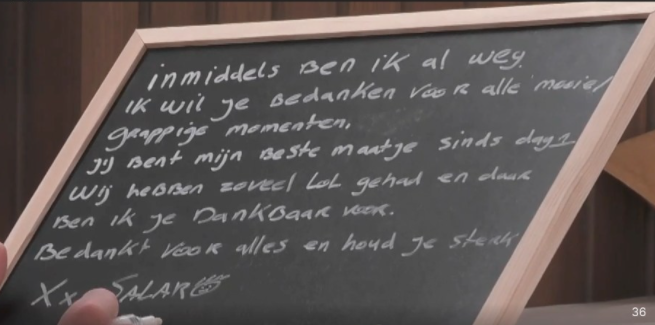 inmiddels Ben ik al weg.
ik wil je Bedanken voor alle mooie/
grappige momenten.
jij Bent mijn Beste maatje sinds dag 1
Wij heBBen zoveel LoL gehad en daar
Ben ik je DankBaar voor.
Bedankt voor alles en houd je sterk
Xx SALAR
36